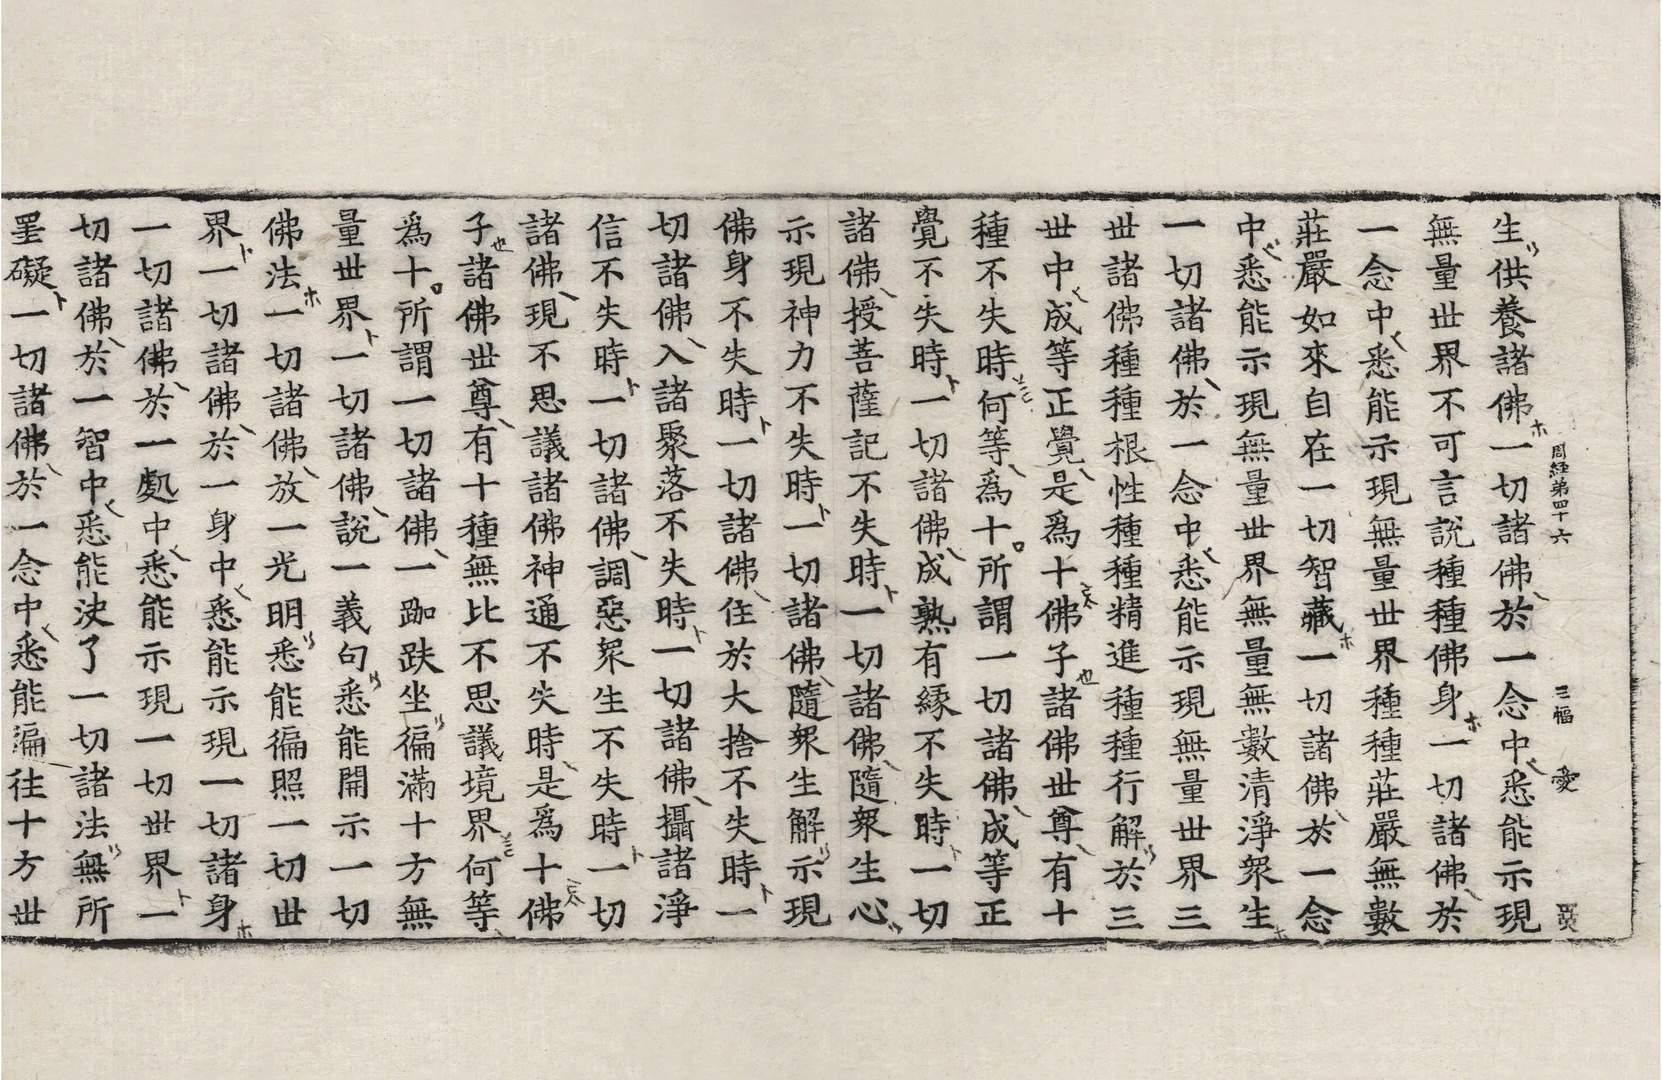 周經第四十六 三幅 愛
生供養諸佛一切諸佛於一念中悉能示現
無量世界不可言說種種佛身一切諸佛於
一念中悉能示現無量世界種種莊嚴無數
莊嚴如來自在一切智藏一切諸佛於一念
中悉能示現無量世界無量無數清淨衆生
一切諸佛於一念中悉能示現無量世界三
世諸佛種種根性種種精進種種行解於三
世中成等正覺是爲十佛子諸佛世尊有十
種不失時何等爲十所謂一切諸佛成等正
覺不失時一切諸佛成熟有緣不失時一切
諸佛授菩薩記不失時一切諸佛隨衆生心
示現神力不失時一切諸佛隨衆生解示現
佛身不失時一切諸佛住於大捨不失時一
切諸佛入諸聚落不失時一切諸佛攝諸淨
信不失時一切諸佛調惡衆生不失時一切
諸佛現不思議諸佛神通不失時是爲十佛
子諸佛世尊有十種無比不思議境界何等
爲十所謂一切諸佛一跏趺坐徧滿十方無
量世界一切諸佛說一義句悉能開示一切
佛法一切諸佛放一光明悉能徧照一切世
界一切諸佛於一身中悉能示現一切諸身
一切諸佛於一處中悉能示現一切世界一
切諸佛於一智中悉能決了一切諸法無所
罣礙一切諸佛於一念中悉能徧往十方世